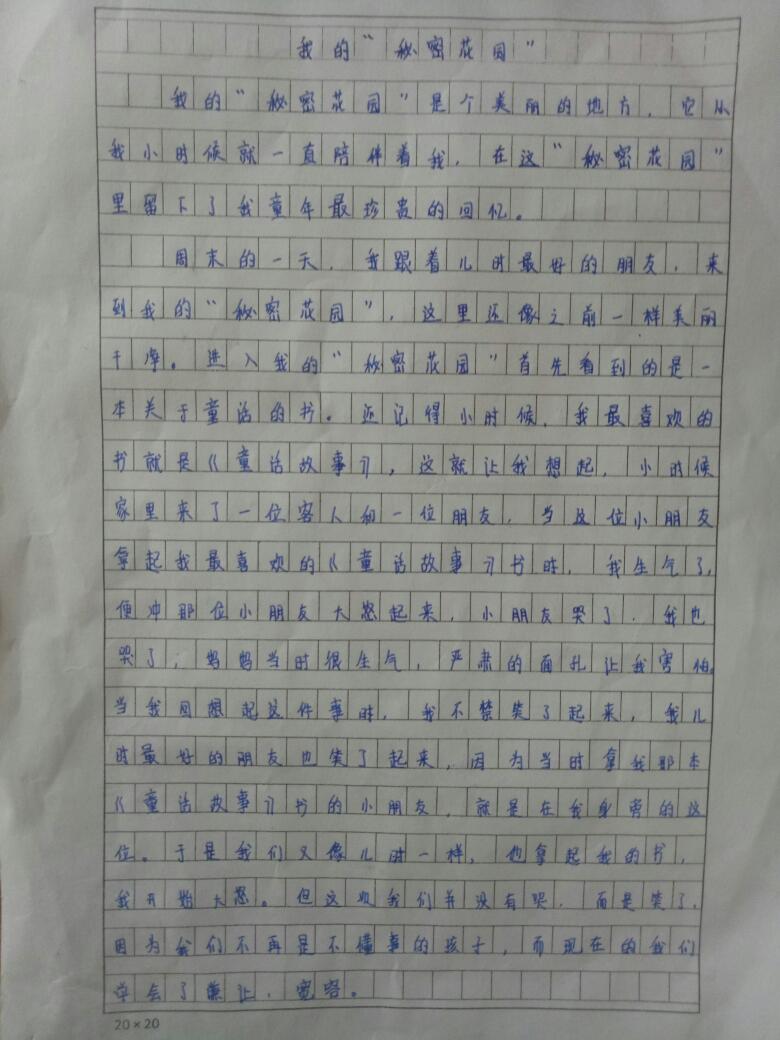 我的“秘密花园”
我的“秘密花园”是个美丽的地方，它从
我小时候就一直陪伴着我，在这“秘密花园”
里留下了我童年最珍贵的回忆。
周末的一天，我跟着儿时最好的朋友，来
到我的“秘密花园”，这里还像之前一样美丽
干净。进入我的“秘密花园”首先看到的是一
本关于童话的书。还记得小时候，我最喜欢的
书就是《童话故事》，这就让我想起，小时候
家里来了一位客人和一位朋友，当这位小朋友
拿起我最喜欢的《童话故事》书时，我生气了，
便冲那位小朋友大怒起来，小朋友哭了，我也
哭了，妈妈当时很生气，严肃的面孔让我害怕。
当我回想起这件事时，我不禁笑了起来，我儿
时最好的朋友也笑了起来，因为当时拿我那本
《童话故事》书的小朋友，就是在我身旁的这
位。于是我们又像儿时一样，他拿起我的书，
我开始大怒。但这次我们并没有哭，而是笑了，
因为我们不再是不懂事的孩子，而现在的我们
学会了谦让，宽容。
20×20